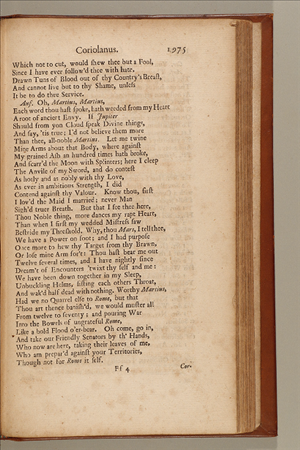 Coriolanus. 1975
Which not to cut, would shew thee but a Fool,
Since I have ever follow'd thee with hate,
Drawn Tuns of Blood out of thy Country's Breast,
And cannot live but to thy Shame, unless
It be to do thee Service.
Auf. Oh, Martius, Martius,
Each word thou hast spoke, hath weeded from my Heart
A root of ancient Envy. If Jupiter
Should from yon Cloud speak Divine things,
And say, 'tis true; I'd not believe them more
Than thee, all-noble Martius. Let me twine
Mine Arms about that Body, where against
My grained Ash an hundred times hath broke,
And scarr'd the Moon with Splinters; here I cleep
The Anvile of my Sword, and do contest
As hotly and as nobly with thy Love,
As ever in ambitious Strength, I did
Contend against thy Valour. Know thou, first
I lov'd the Maid I married; never Man
Sigh'd truer Breath. But that I see thee here,
Thou Noble thing, more dances my rapt Heart,
Than when I first my wedded Mistress saw
Bestride my Threshold. Why, thou Mars, I tell thee,
We have a Power on foot; and I had purpose
Once more to hew thy Target from thy Brawn,
Or lose mine Arm for't: Thou hast beat me out
Twelve several times, and I have nightly since
Dream't of Encounters 'twixt thy self and me:
We have been down together in my Sleep,
Unbuckling Helms, fisting each others Throat,
And wak'd half dead with nothing. Worthy Martius,
Had we no Quarrel else to Rome, but that
Thou art thence banish'd, we would muster all
From twelve to seventy; and pouring War
Into the Bowels of ungrateful Rome,
Like a bold Flood o'er-bear. Oh come, go in,
And take our Friendly Senators by th' Hands,
Who now are here, taking their leaves of me,
Who am prepar'd against your Territories,
Though not for Rome it self.
Ff 4 Cor.